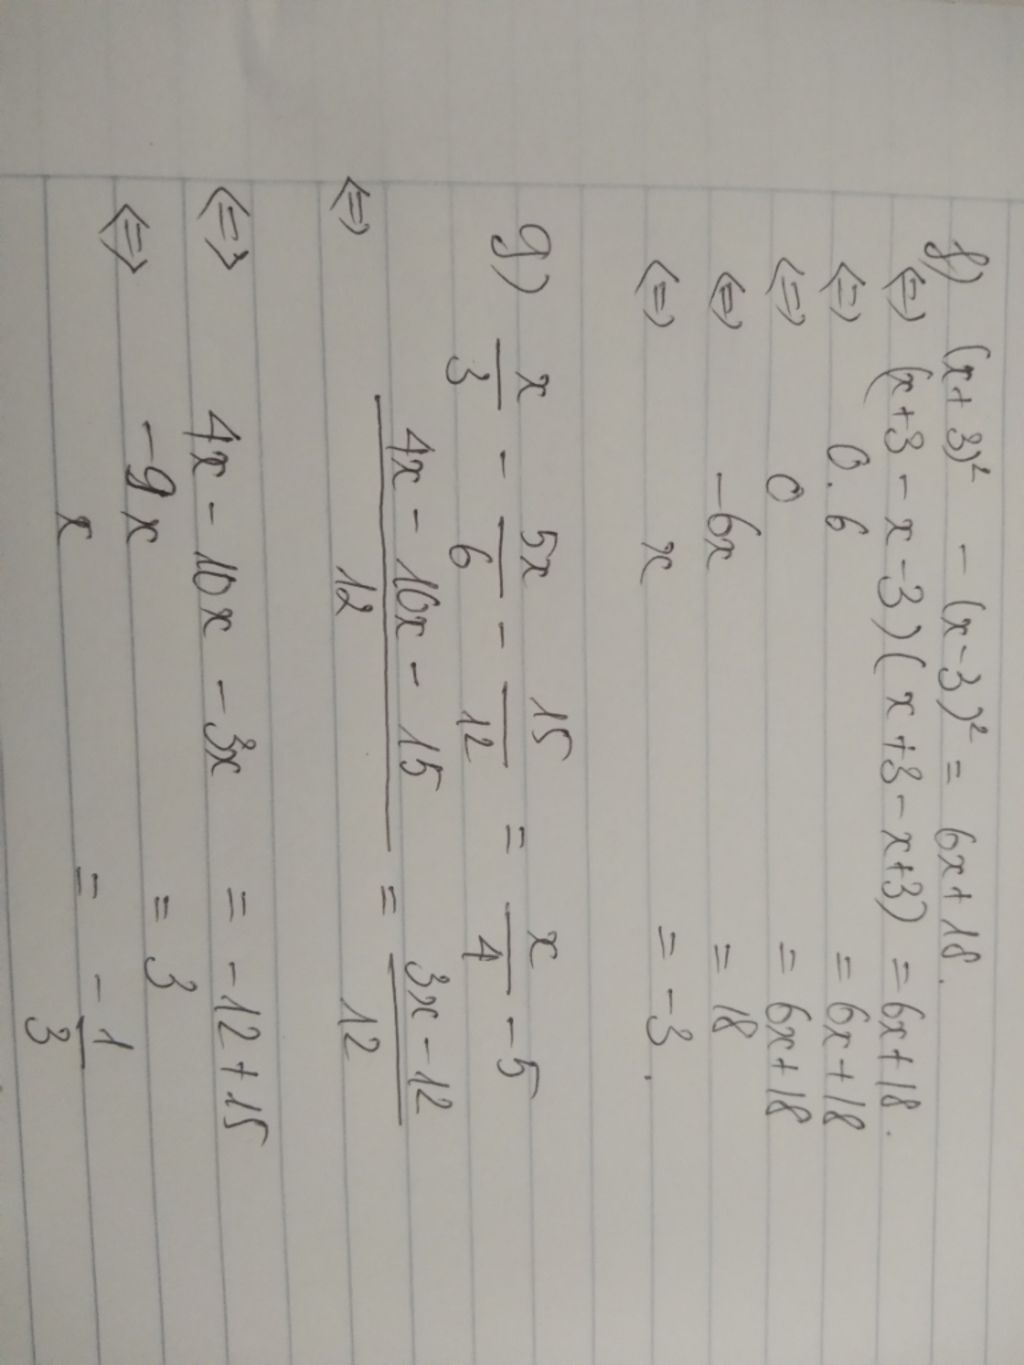 f) (x+3)² - (x-3)² = 6x+18.
⇔ (x+3-x-3)(x+3-x+3) = 6x+18.
⇔ 0.6 = 6x+18
⇔ 0 = 6x+18
⇔ -6x = 18
⇔ x = -3.
g) x/3 - 5x/6 - 15/12 = x/4 - 5
⇔ (4x - 10x - 15)/12 = (3x-12)/12
⇔ 4x - 10x - 3x = -12+15
⇔ -9x = 3
x = -1/3